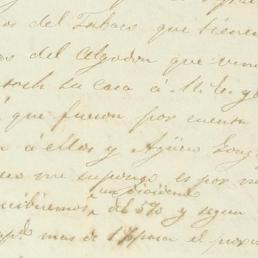 os del Tabaco que tienen
os del Algodon que vini
su casa á
que fueron por cuenta
n á ellos y Agüero Gonz
me supongo es por
un dividendo
recibiremos del 5% y segun
mas de 1% para el